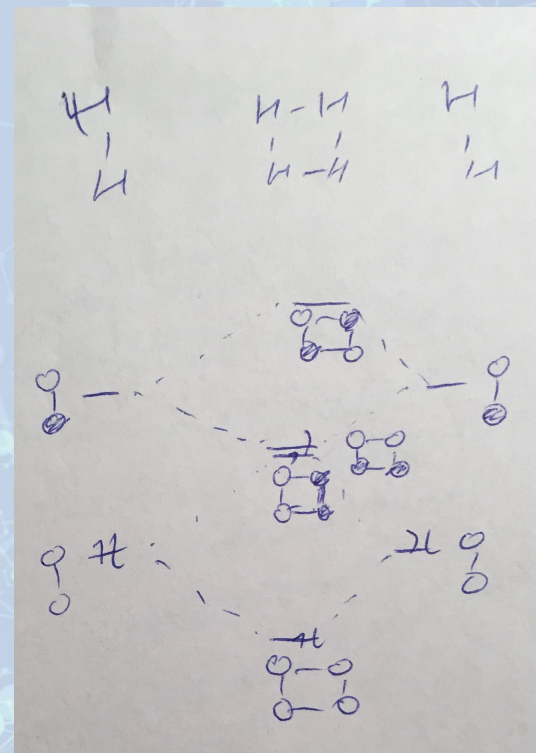 H H-H H
H H-H H